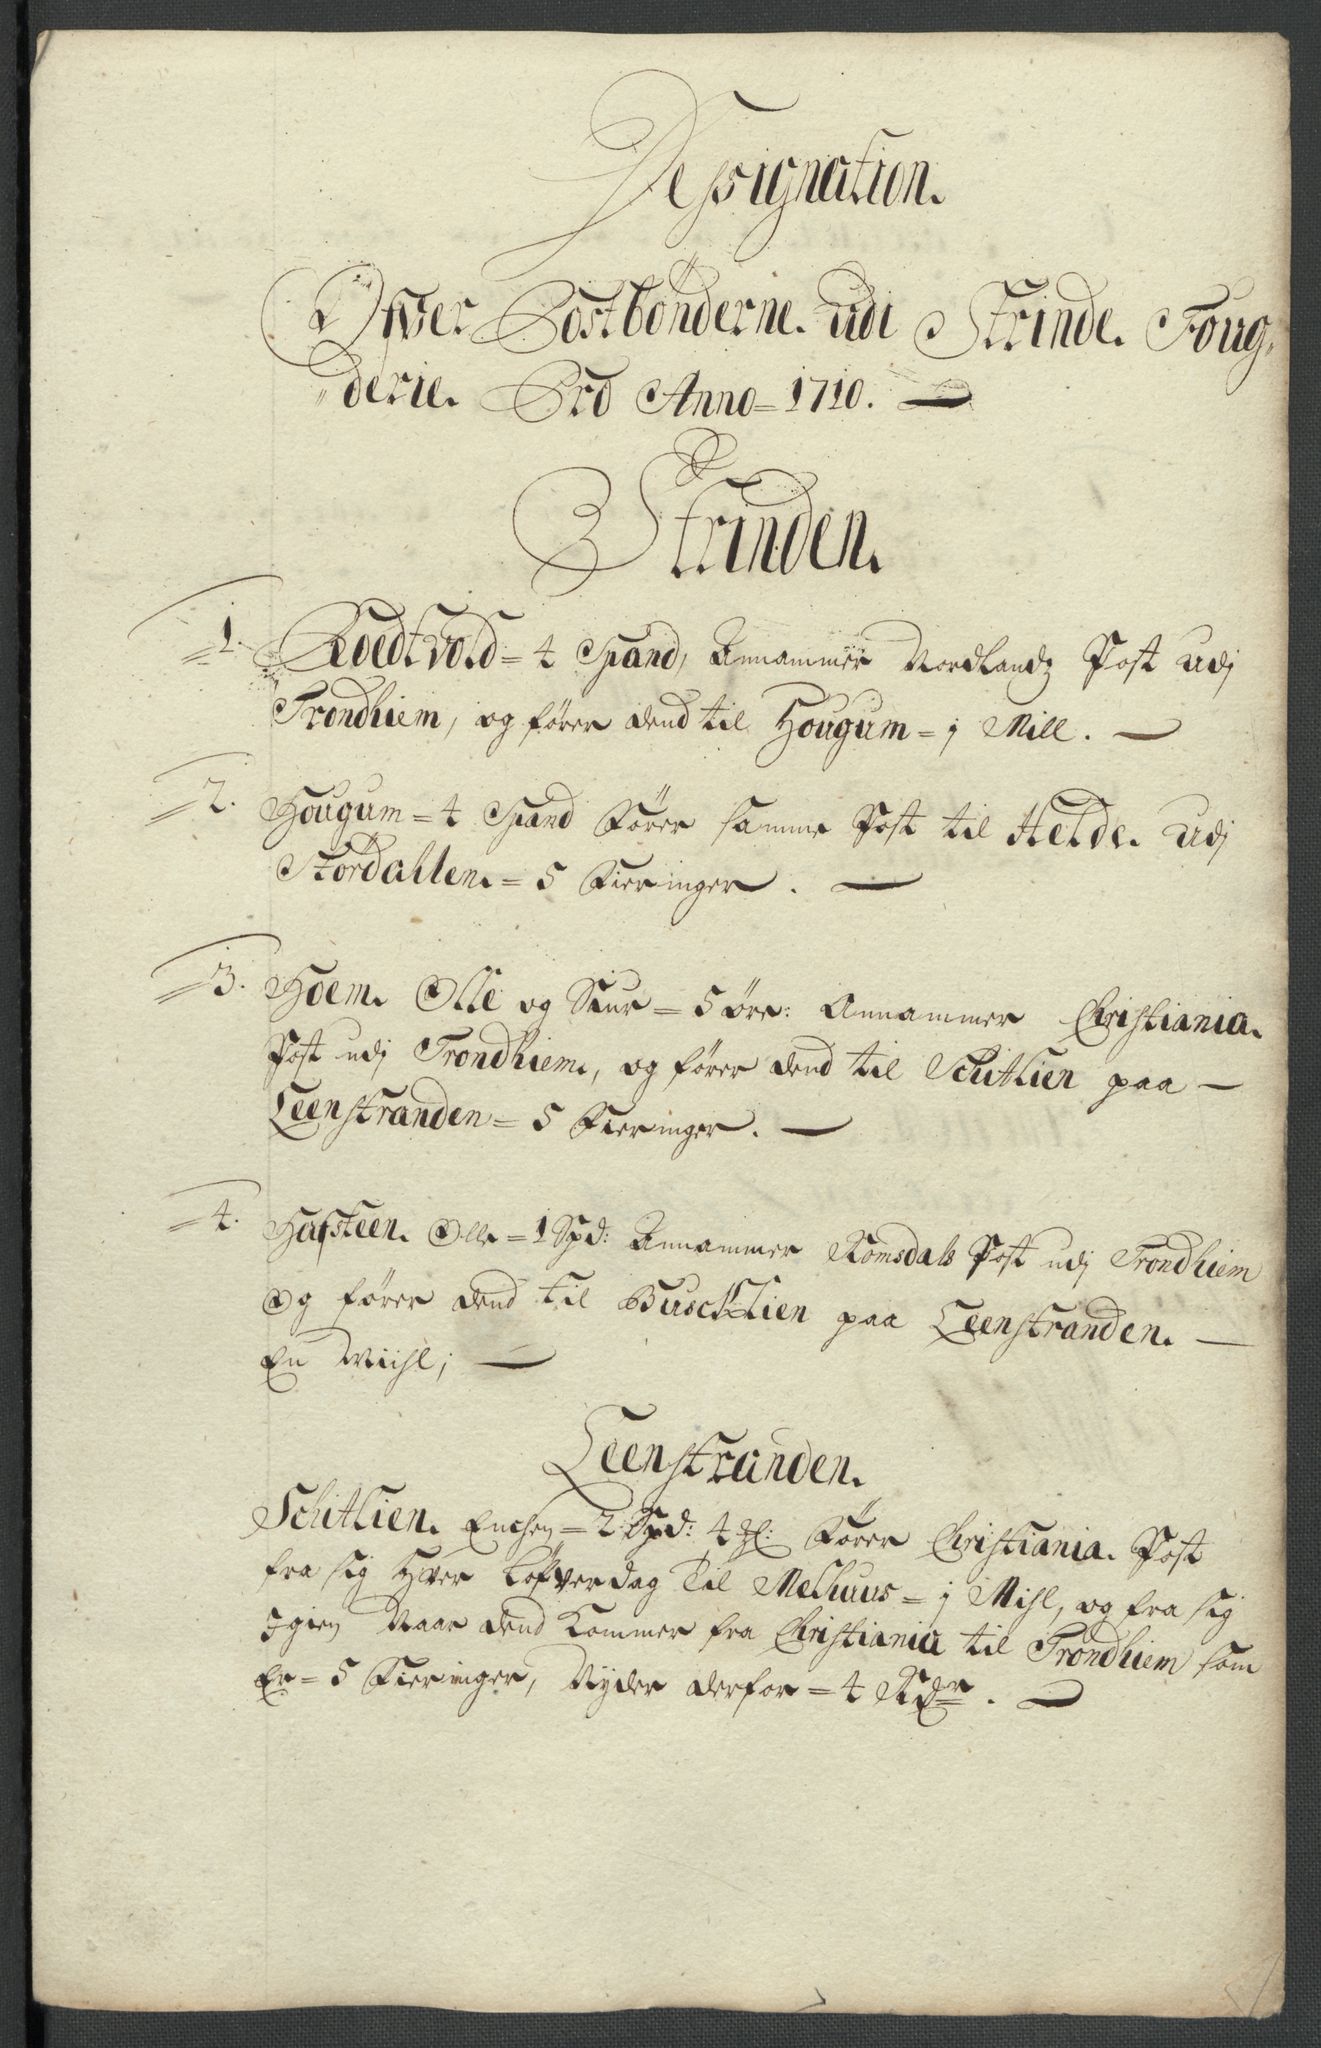 Dessignation.
Ofwer Postbönderne. udi Strinde. Foug-
derie. Pro Anno = 1710.
Strinden.
1. Roedtvold = 4 Spand, Annammer Nordlandz Post udj
Trondhiem, og fører dend til Hougum = j Miil.
2. Hougum = 4 Spand Fører samme Post til Helde. udj
Stördahlen. = 5 Fieringer.
3. Hoem. Olle og Siur = 5 øre: Annammer Christiania.
Post udj Trondhiem, og fører dend til Schitlien paa
Leenstranden = 5 Fieringer.
4. Hafsteen. Olle = 1 Spd: Annammer Romsdals Post udj Trondhiem
Og fører dend til Buschlien paa Leenstranden.
En Miihl;
Leenstranden.
Schitlien. = 2 Spd: 4 Fører Christiania. Post
fra sig Hver Löfverdag Til Melhuus = j Mihl, og fra sig
Igien Naar dend kommer fra Christiania til Trondhiem som
Er = 5 Fieringer, Nyder derfor = 4 Rdr.